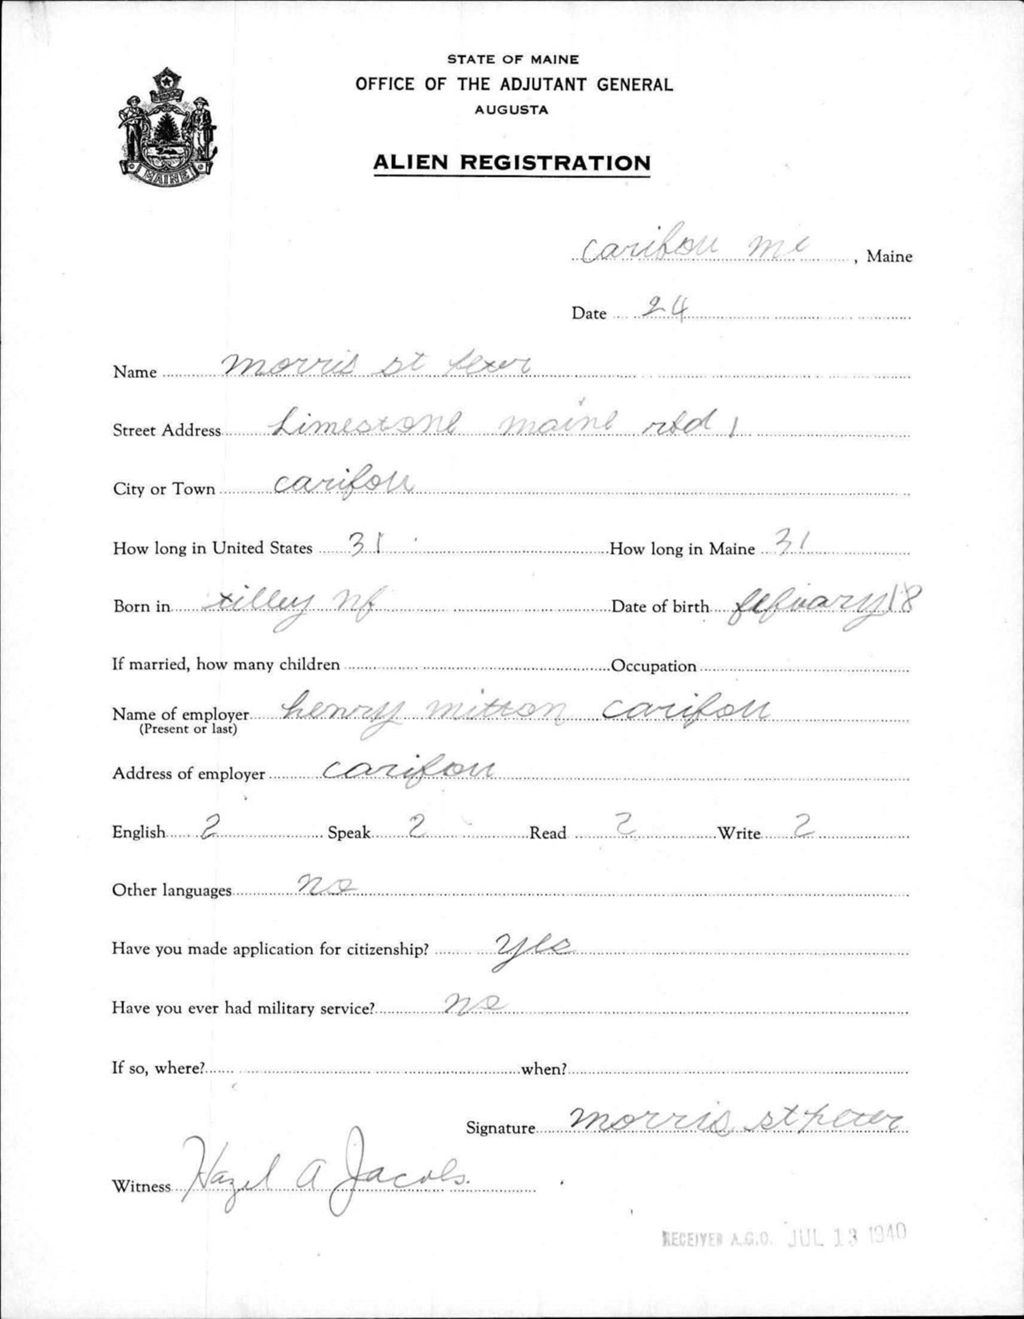 STATE OF MAINE
OFFICE OF THE ADJUTANT GENERAL
AUGUSTA
MAINE
ALIEN REGISTRATION
Caribou Me , Maine
Date 24
Name Morris st peter
Street Address Limestone maine rfd 1
City or Town caribou
How long in United States 31 How long in Maine 31
Born in tilley Date of birth 18
If married, how many children Occupation
Name of employer henry mitton caribou
(Present or last)
Address of employer caribou
English 2 Speak 2 Read 2 Write 2
Other languages no
Have you made application for citizenship? yes
Have you ever had military service? no
If so, where? when?
Signature morris st peter
Witness Hazel A Jacobs.
RECEIVED A.G.O. JUL 13 1940